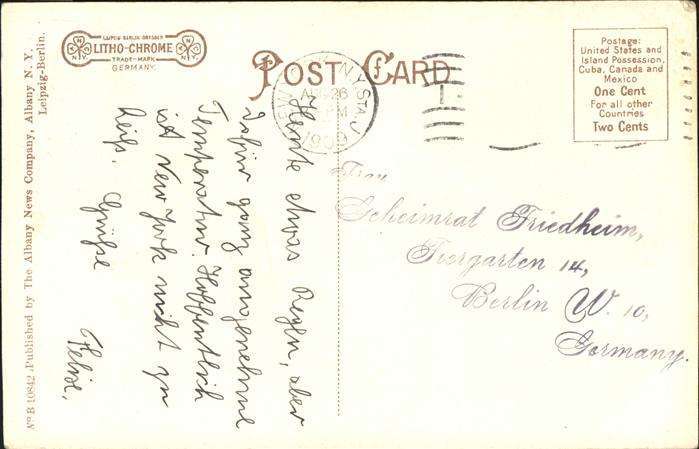 LEIPZIG BERLIN DRESDEN
LITHO-CHROME
TRADE-MARK
GERMANY.
N K
N Y
N K
N Y
POST CARD
Postage:
United States and
Island Possession,
Cuba, Canada and
Mexico
One Cent
For all other
Countries
Two Cents
N.Y. STA. J
AUG 26
PM
1909
Heute etwas Regen, aber
dafür ganz angenehme
Temperatur. Hoffentlich
ist New York nicht zu
heiß. Grüße
Felix.
Frau
Geheimrat Friedheim,
Tiergarten 14,
Berlin W. 10,
Germany.
No B 10842 Published by The Albany News Company, Albany N. Y.
Leipzig-Berlin.